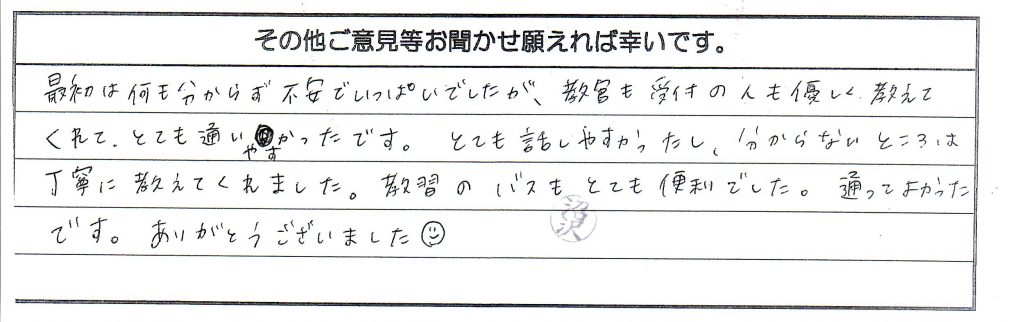 その他ご意見等お聞かせ願えれば幸いです。
最初は何も分からず不安でいっぱいでしたが、教官も受付の人も優しく教えて
くれて、とても通いやすかったです。とても話しやすかったし、分からないところは
丁寧に教えてくれました。教習のバスもとても便利でした。通ってよかった
です。ありがとうございました☺
沼沢